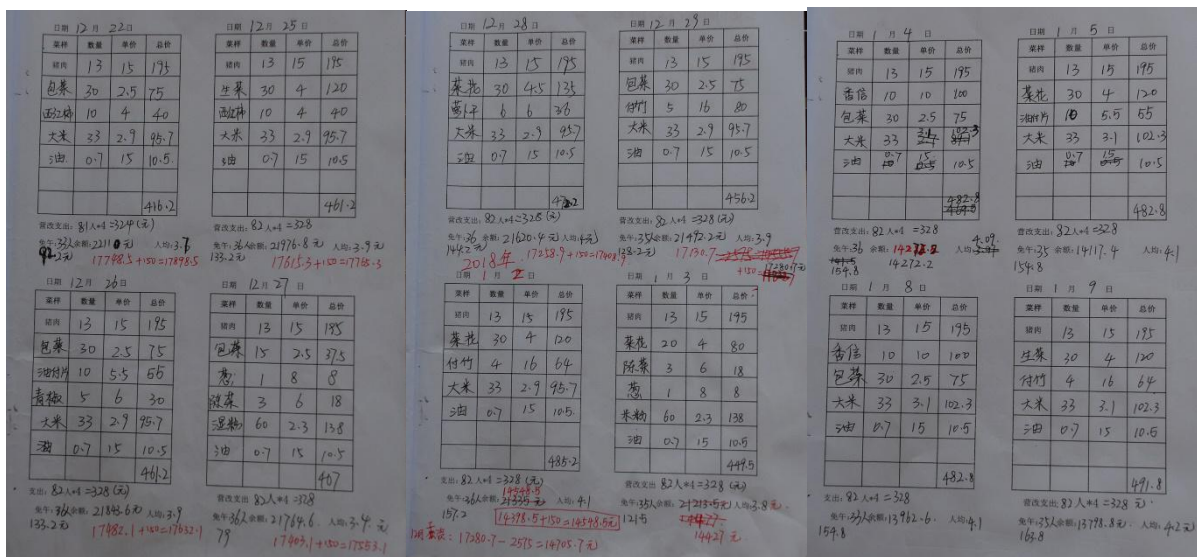 日期 12月 22日
菜样 数量 单价 总价
猪肉 13 15 195
包菜 30 2.5 75
西红柿 10 4 40
大米 33 2.9 95.7
油 0.7 15 10.5
416.2
营改支出:81人*4=324(元)
免午:33人余额:22110元 人均:3.7
92.2元 17748.5+150=17898.5
日期 12月 25日
菜样 数量 单价 总价
猪肉 13 15 195
生菜 30 4 120
西红柿 10 4 40
大米 33 2.9 95.7
油 0.7 15 10.5
461.2
营改支出:82人*4=328
免午:36人余额:21976.8元 人均:3.9元
133.2元 17615.3+150=17765.3
日期 12月 26日
菜样 数量 单价 总价
猪肉 13 15 195
包菜 30 2.5 75
油付片 10 5.5 55
青椒 5 6 30
大米 33 2.9 95.7
油 0.7 15 10.5
461.2
支出:82人*4=328(元)
免午:36人余额:21843.6元 人均:3.9
133.2元 17482.1+150=17632.1
日期 12月 27日
菜样 数量 单价 总价
猪肉 13 15 195
包菜 15 2.5 37.5
葱 1 8 8
陈菜 3 6 18
湿粉 60 2.3 138
油 0.7 15 10.5
407
营改支出 82人*4=328
免午:36人余额:21764.6 人均:3.4元
79 17403.1+150=17553.1
日期 12月 28日
菜样 数量 单价 总价
猪肉 13 15 195
菜花 30 4.5 135
萝卜干 6 6 36
大米 33 2.9 95.7
油 0.7 15 10.5
营改支出:82人*4=328(元)
免午:36 余额:21620.4元 人均:4元
144.2元 17258.9+150=17408.9
日期 12月 29日
菜样 数量 单价 总价
猪肉 13 15 195
包菜 30 2.5 75
付竹 5 16 80
大米 33 2.9 95.7
油 0.7 15 10.5
456.2
营改支出:82人*4=328(元)
免午:35人余额:21492.2元 人均:3.9
17130.7
+150=17280.7元
2018年
日期 1月 2日
菜样 数量 单价 总价
猪肉 13 15 195
菜花 30 4 120
付竹 4 16 64
大米 33 2.9 95.7
油 0.7 15 10.5
485.2
支出:82人*4=328(元)
14548.5
免午:36人余额: 人均:4.1
157.2 14398.5+150=14548.5元
17280.7-2575=14705.7元
日期 1月 3日
菜样 数量 单价 总价
猪肉 13 15 195
菜花 20 4 80
陈菜 3 6 18
葱 1 8 8
米粉 60 2.3 138
油 0.7 15 10.5
449.5
营改支出:82人*4=328(元)
免午:35人余额:21213.5元 人均:3.8元
121.5 14427元
日期 1月 4日
菜样 数量 单价 总价
猪肉 13 15 195
香信 10 10 100
包菜 30 2.5 75
大米 33 3.1 102.3
油 0.7 15 10.5
482.8
营改支出:82人*4=328
免午:36 余额:14272.2 人均:4.09
154.8 14272.2
日期 1月 5日
菜样 数量 单价 总价
猪肉 13 15 195
菜花 30 4 120
油付片 10 5.5 55
大米 33 3.1 102.3
油 0.7 15 10.5
482.8
营改支出:82人*4=328
免午:35 余额:14117.4 人均:4.1
154.8
日期 1月 8日
菜样 数量 单价 总价
猪肉 13 15 195
香信 10 10 100
包菜 30 2.5 75
大米 33 3.1 102.3
油 0.7 15 10.5
482.8
支出:82人*4=328
免午:33人余额:13962.6 人均:4.1
154.8
日期 1月 9日
菜样 数量 单价 总价
猪肉 13 15 195
生菜 30 4 120
付竹 4 16 64
大米 33 3.1 102.3
油 0.7 15 10.5
491.8
营改支出:82人*4=328元
免午:35人余额:13798.8元 人均:4.2元
163.8